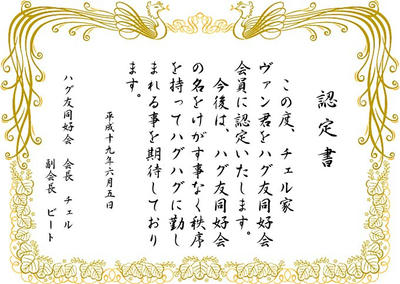 認定書
この度、チェル家
ヴァン君をハグ友同好会
会員に認定いたします。
今後は、ハグ友同好会
の名をけがす事なく秩序
を持ってハグハグに勤し
まれる事を期待しており
ます。
平成十九年六月五日
ハグ友同好会　会長　チェル
副会長　ビート